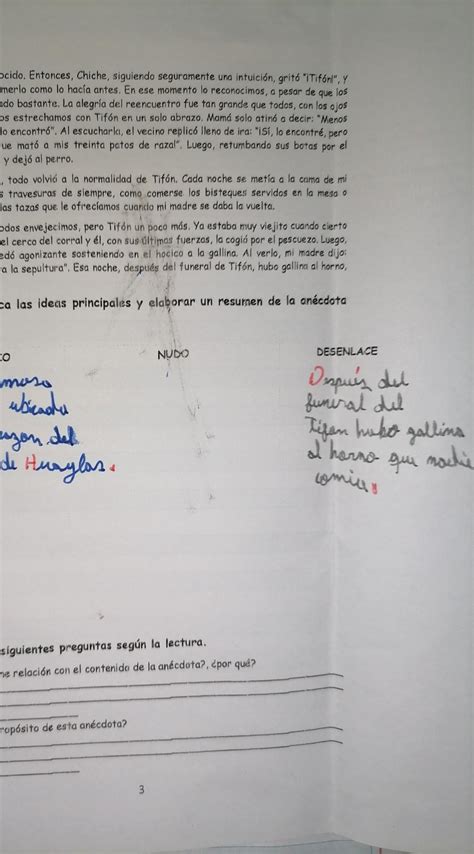 ocido. Entonces, Chiche, siguiendo seguramente una intuición, gritó "¡Tifón!", y
merlo como lo hacía antes. En ese momento lo reconocimos, a pesar de que los
ado bastante. La alegría del reencuentro fue tan grande que todos, con los ojos
os estrechamos con Tifón en un solo abrazo. Mamá solo atinó a decir: "Menos
lo encontró". Al escucharla, el vecino replicó lleno de ira: "¡SÍ, lo encontré, pero
ue mató a mis treinta patos de raza!". Luego, retumbando sus botas por el
y dejó al perro.
, todo volvió a la normalidad de Tifón. Cada noche se metía a la cama de mi
s travesuras de siempre, como comerse los bisteques servidos en la mesa o
las tazas que le ofrecíamos cuando mi madre se daba la vuelta.
odos envejecimos, pero Tifón un poco más. Ya estaba muy viejito cuando cierto
el cerco del corral y él, con sus últimas fuerzas, la cogió por el pescuezo. Luego,
edó agonizante sosteniendo en el hocico a la gallina. Al verlo, mi madre dijo:
ra la sepultura". Esa noche, después del funeral de Tifón, hubo gallina al horno,
ca las ideas principales y elaborar un resumen de la anécdota
CO NUDO DESENLACE
moso
ubicada
azon del
de Huaylas.
Después del
funeral del
Tifon hubo gallina
al horno que nadie
comió.
siguientes preguntas según la lectura.
ne relación con el contenido de la anécdota?, ¿por qué?
ropósito de esta anécdota?
3